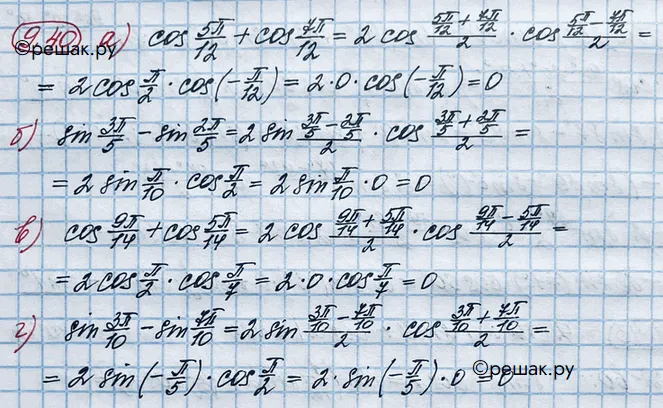 9.40 а) cos 5π/12 + cos 7π/12 = 2 cos (5π/12 + 7π/12)/2 · cos (5π/12 − 7π/12)/2 =
©решак.ру
= 2 cos π/2 · cos(−π/12) = 2·0·cos(−π/12) = 0
б) sin 3π/5 − sin 2π/5 = 2 sin (3π/5 − 2π/5)/2 · cos (3π/5 + 2π/5)/2 =
= 2 sin π/10 · cos π/2 = 2 sin π/10 · 0 = 0
в) cos 9π/14 + cos 5π/14 = 2 cos (9π/14 + 5π/14)/2 · cos (9π/14 − 5π/14)/2 =
= 2 cos π/2 · cos π/7 = 2·0·cos π/7 = 0
г) sin 3π/10 − sin 7π/10 = 2 sin (3π/10 − 7π/10)/2 · cos (3π/10 + 7π/10)/2 =
= 2 sin(−π/5) · cos π/2 = 2·sin(−π/5)·0 = 0
©решак.ру